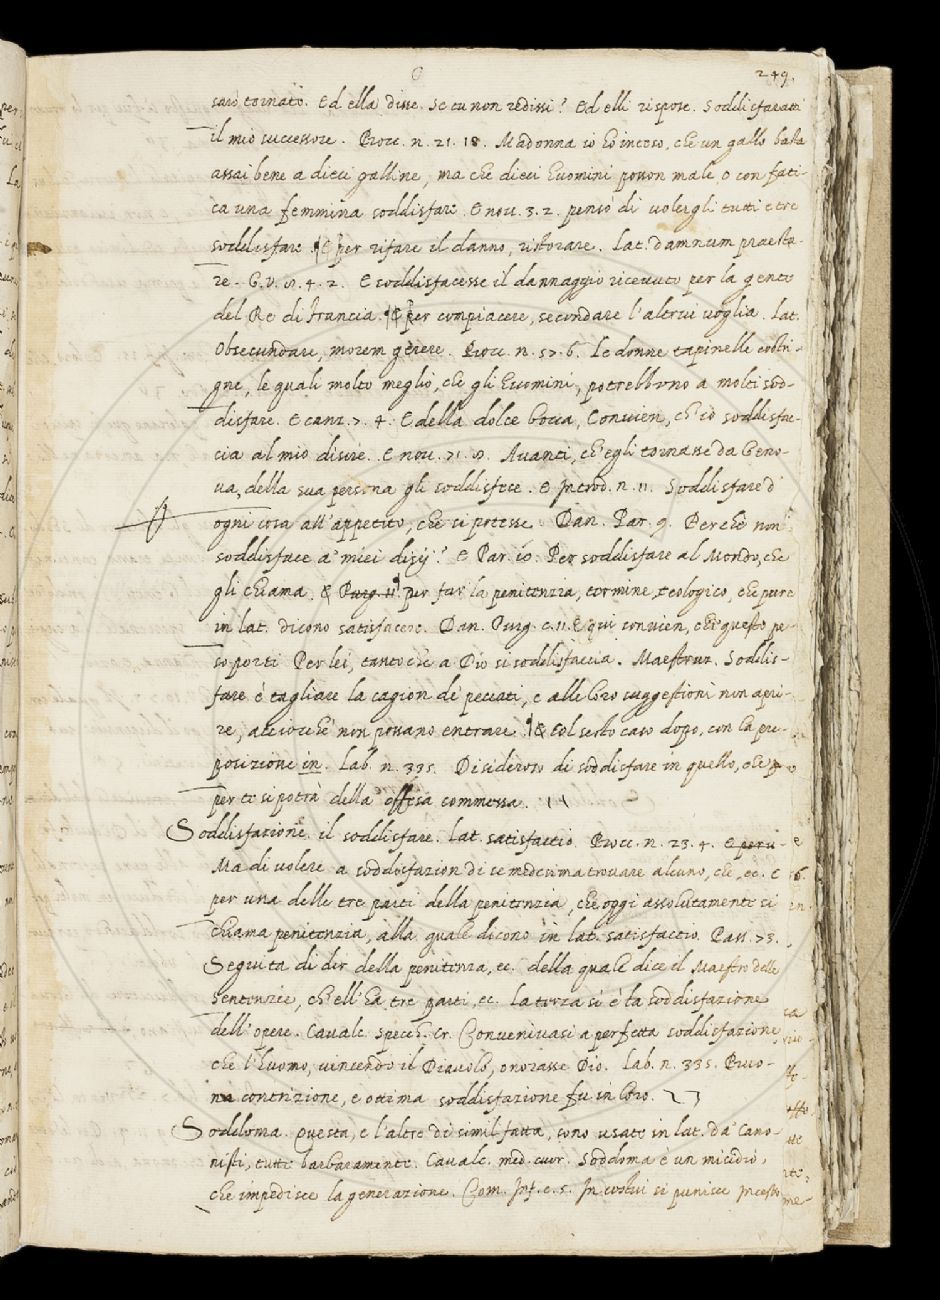 249.
sarò tornato. Ed ella disse. Se tu non redissi? Ed elli rispose. Soddisfaratti
il mio successore. Bocc. n. 21. 18. Madonna io hò inteso, che un gallo basta
assai bene a dieci galline, ma che dieci huomini posson male, o con fati-
ca una femmina soddisfare. E nov. 3. 2. pensò di volergli tutti e tre
soddisfare. ¶ E per rifare il danno, ristorare. Lat. damnum praesta-
re. G. V. 9. 4. 2. E soddisfacesse il dannaggio ricevuto per la gente
del Re di Francia. ¶ E per compiacere, secondare l'altrui voglia. Lat.
Obsecundare, morem gerere. Bocc. n. 57. 6. Le donne tapinelle costri-
gne, le quali molto meglio, che gli huomini, potrebbono a molti sod-
disfare. E canz. 7. 4. E della dolce bocca, Convien, ch' io soddisfac-
cia al mio disire. E nov. 71. 9. Avanti, ch' egli tornasse da Geno-
va, della sua persona gli soddisfece. E Introd. n. 11. Soddisfare d'
ogni cosa all' appetito, che si potesse. Dan. Par. 9. Perchè non
soddisface a' miei disij? E Par. 10. Per soddisfare al Mondo, che
gli chiama. E Purg. 11. per far la penitenzia, termine teologico, che pure
in lat. dicono satisfacere. Dan. Purg. c. 11. E quì convien, ch' questo pe-
so porti Per lei, tanto che a Dio si soddisfaccia. Maestruz. Soddis-
fare è tagliare la cagion de' peccati, e alle loro suggestioni non apri-
re, acciocchè non possano entrare. ¶ E col sesto caso dopo, con la pre-
posizione in. Lab. n. 335. Disideroso di soddisfare in quello, che
per te si potrà della offesa commessa.
Soddisfazione. il soddisfare. Lat. satisfactio. Bocc. n. 23. 4.
Ma di volere a soddisfazion di se medesima trovare alcuno, che, ec. E
per una delle tre parti della penitenzia, che oggi assolutamente si
chiama penitenzia, alla quale dicono in lat. satisfactio. Pass. 73.
Seguita di dir della penitenza, ec. della quale dice il Maestro delle
sentenzie, ch' ell' ha tre parti, ec. la terza si è la soddisfazione
dell' opere. Cavalc. Specch. Cr. Convenivasi a perfetta soddisfazione,
che l'huomo, vincendo il Diavolo, onorasse Dio. Lab. n. 335. Buo-
na contrizione, e ottima soddisfazione fu in loro.
Soddoma. questa, e l'altre di simil fatta, sono usate in lat. da' Cano-
nisti, tutte barbaramente. Cavalc. med. cuor. Soddoma è un micidio,
che impedisce la generazione. Com. Inf. c. 5. In costui si punisce Incesto